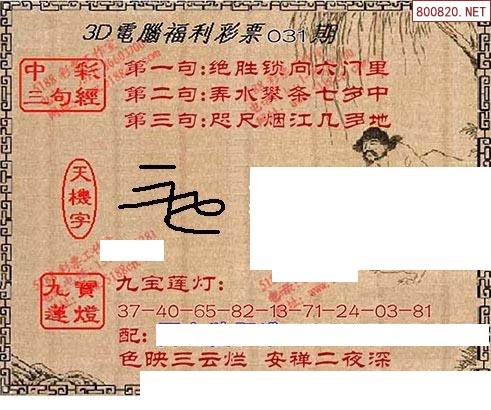 800820.NET
3D電腦福利彩票031期
中彩
三句經
第一句:绝胜锁向六门里
第二句:弄水攀条七岁中
第三句:咫尺烟江几多地
天機字
九寶
蓮燈
九宝莲灯:
37-40-65-82-13-71-24-03-81
配:
色映三云烂 安禅二夜深